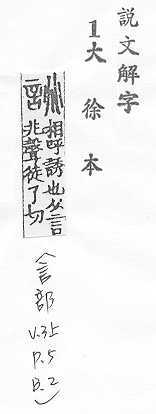 説文解字
1大徐本
誂相呼誘也从言
兆聲徒了切
(言部 V.3上 P.5 B.2)